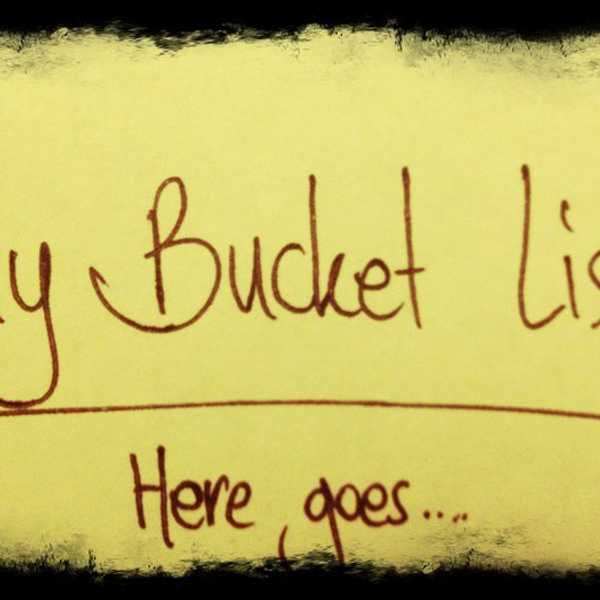 y Bucket Lis
Here goes....